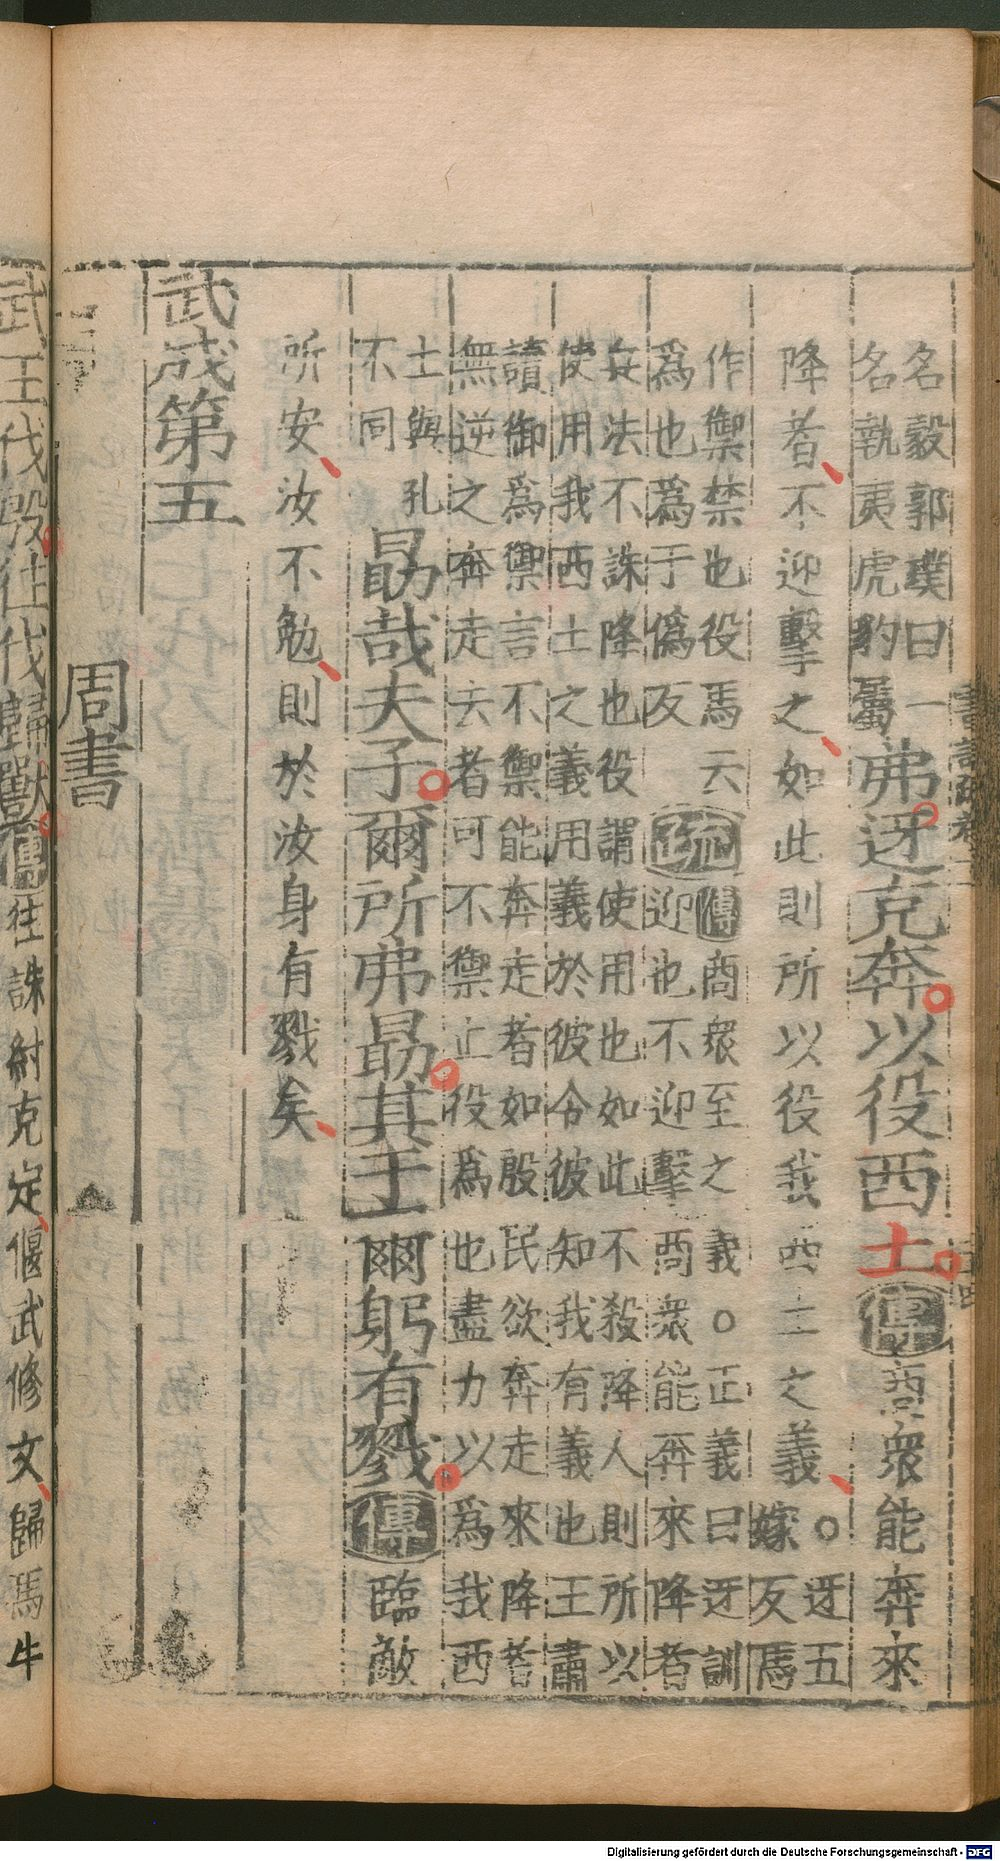 名毅郭璞曰一
名執夷虎豹屬弗迓克奔以役西土傳商眾能奔來
降者不迎擊之如此則所以役我西土之義。迓五
嫁反馬
作禦禁也役馬云
為也為于偽反疏傳商眾至之義。正義曰迓訓
迎也不迎擊商眾能奔來降者
兵法不誅降也役謂使用也如此不殺降人則所以
使用我西土之義用義於彼令彼知我有義也王肅
讀御為禦言不禦能奔走者如殷民欲奔走來降者
無逆之奔走去者可不禦止役為也盡力以為我西
土與孔
不同勗哉夫子爾所弗勗其于爾躬有戮傳臨敵
所安汝不勉則於汝身有戮矣
武成第五
周書
武王伐殷往伐歸獸傳往誅紂克定偃武修文歸馬牛
Digitalisierung gefördert durch die Deutsche Forschungsgemeinschaft - DFG